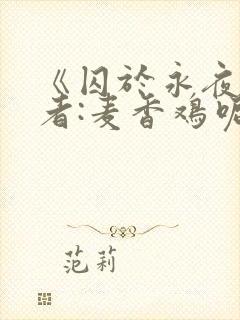 《囚於永夜
者:麦香鸡呢
范莉